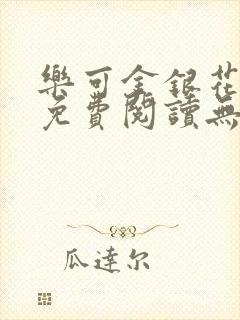 樂可金銀花
免費閱讀無
瓜達尔